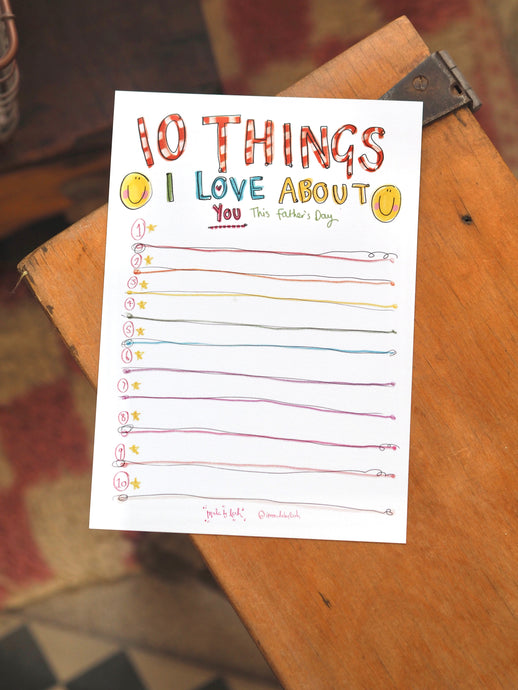 10 THINGS
I LOVE ABOUT
YOU This Father's Day
1
2
3
4
5
6
7
8
9
10